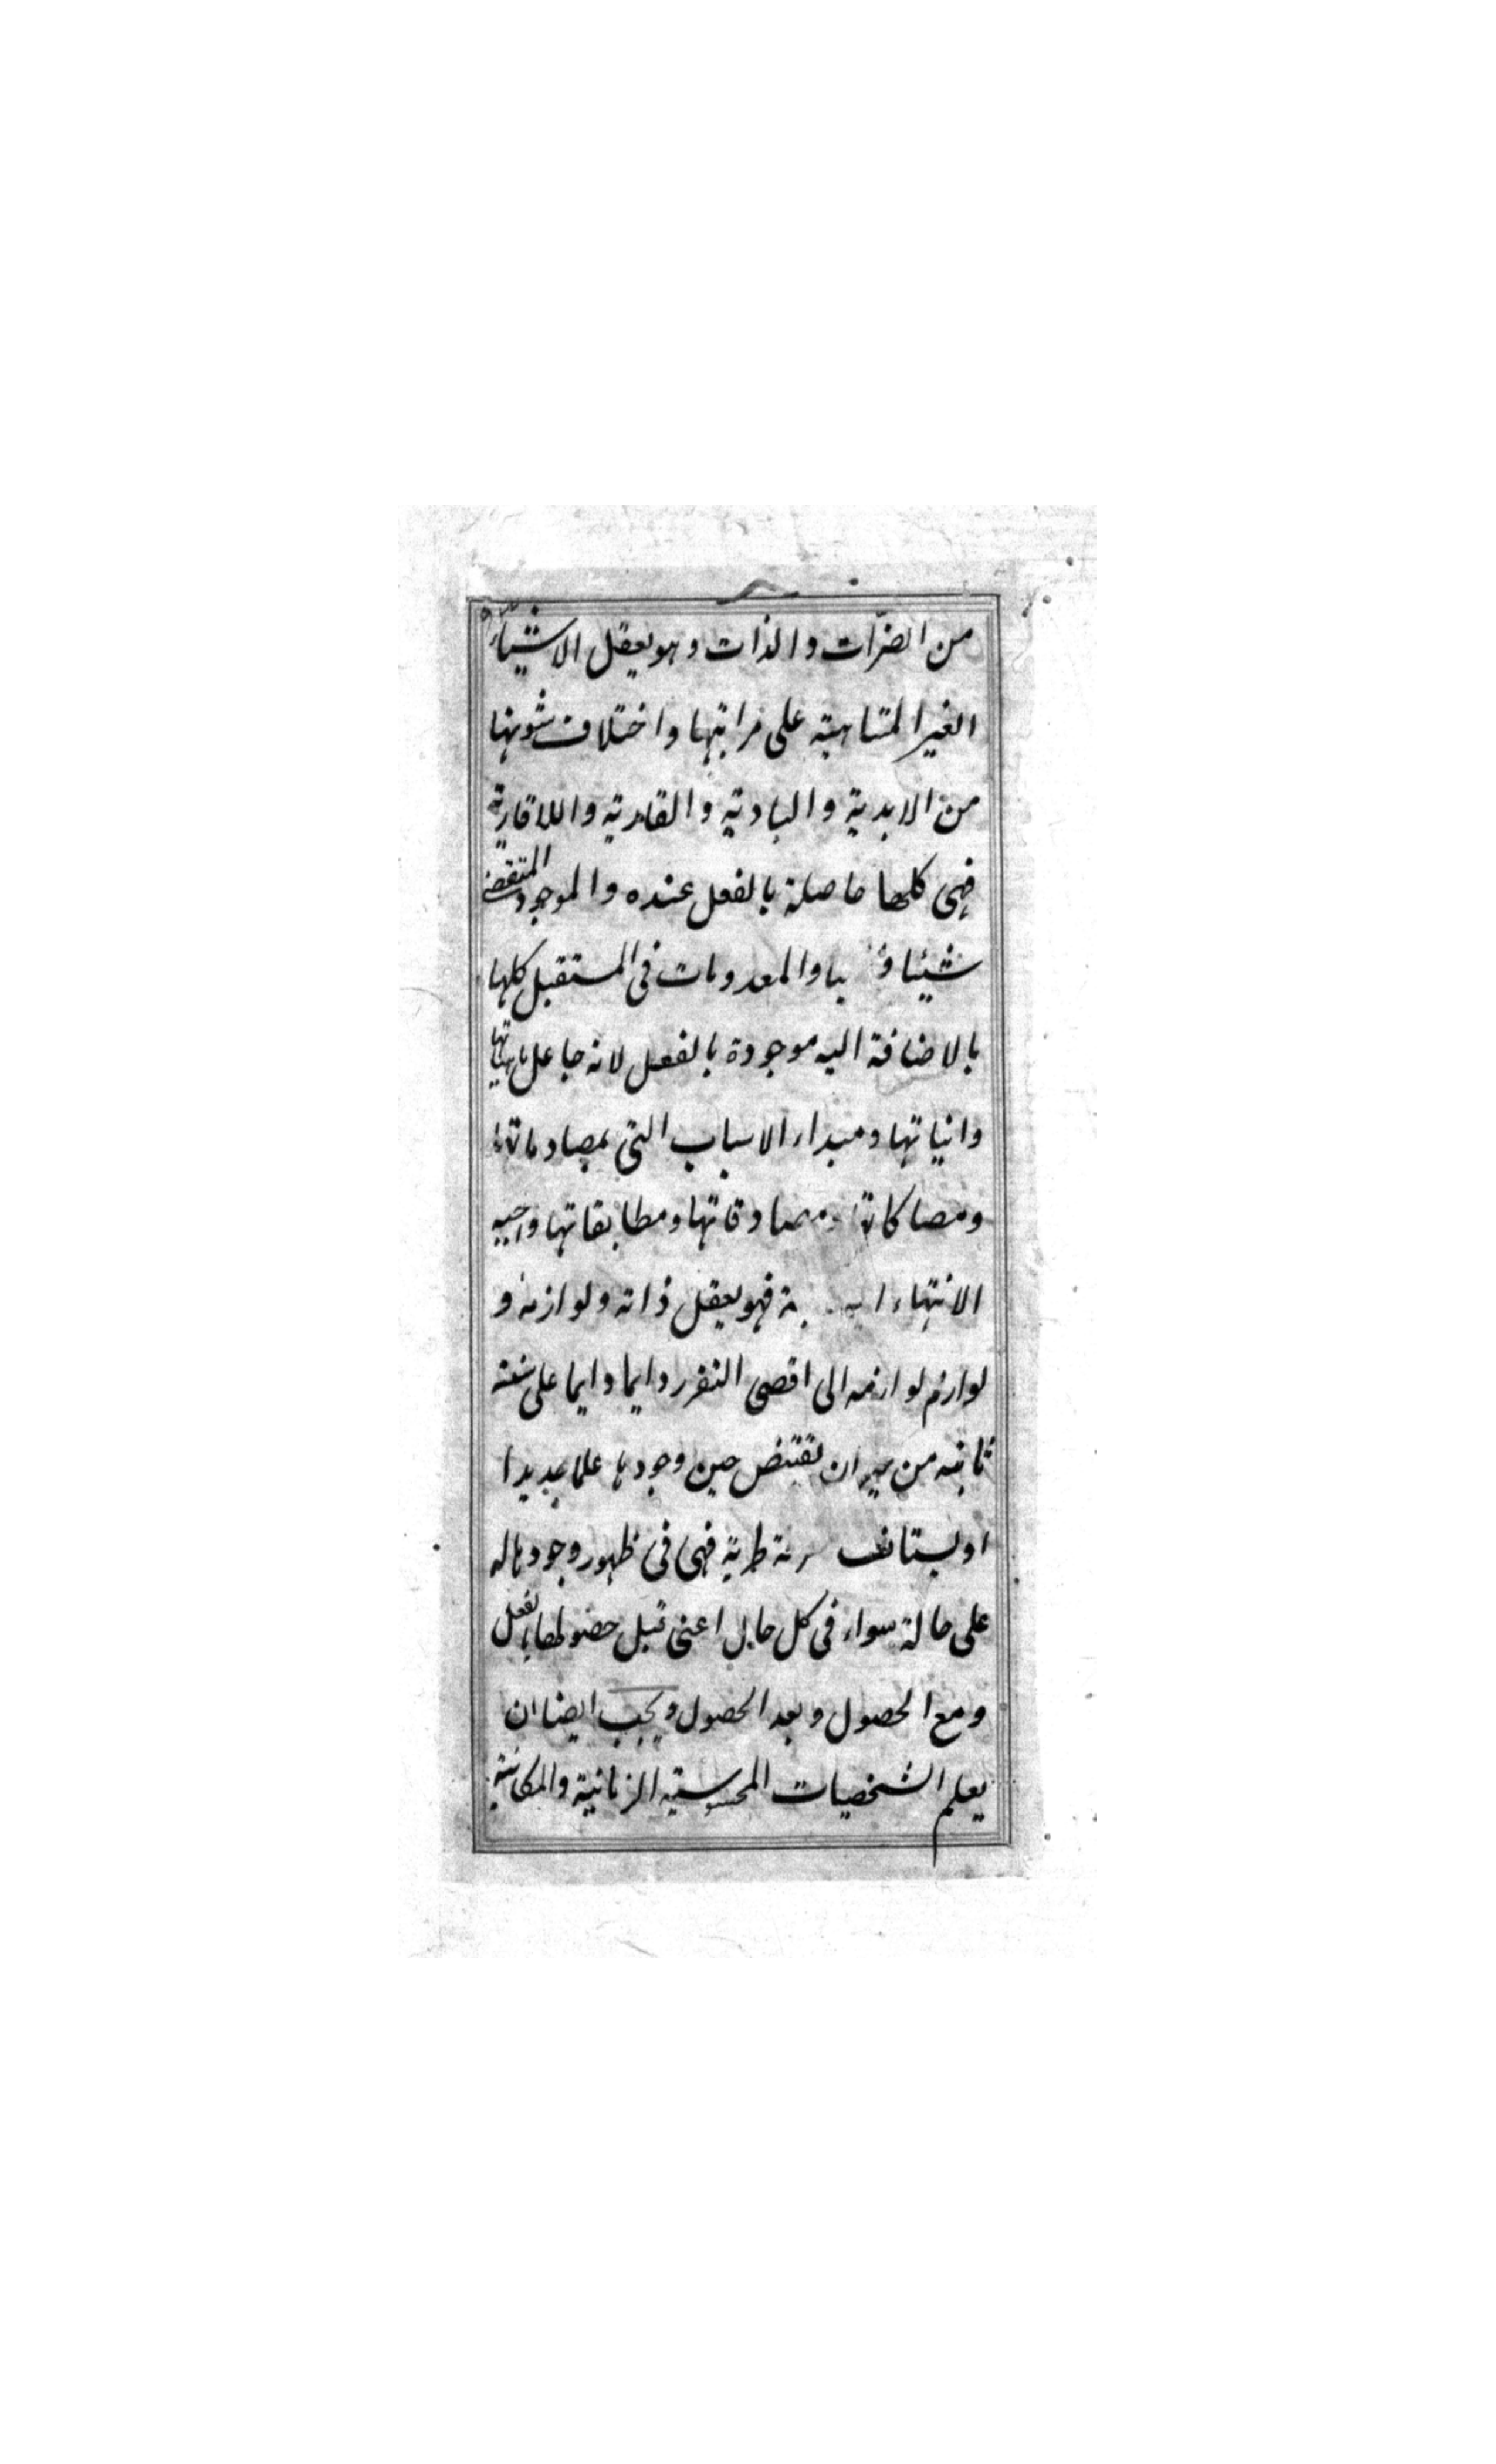 من الضرّات والذات وهو يعقل الاشياء
الغير المتناهية على مراتبها واختلاف شؤنها
من الابدية والبادية والقارية واللاقارية
فهى كلها حاصلة بالفعل عنده والموجود المتقضى
شيئا والمعدومات فى المستقبل كلها
بالاضافة اليه موجودة بالفعل لانه جاعل ماهياتها
وانياتها ومبداء الاسباب التى بمصادماتها
ومصاكاتها ومصادقاتها ومطابقاتها واجبه
الانتهاء فهو يعقل ذاته ولوازمه و
لوازم لوازمه الى اقصى التقرر دايما دايما على سنته
ثابته من غير ان يقتنص حين وجودها علما جديدا
او يستانف طرية فهى فى ظهور وجودها له
على حالة سواء فى كل حال اعنى قبل حضولها بالفعل
ومع الحصول وبعد الحصول ويجب ايضا ان
يعلم الشخصيات المحسوسية الزمانية والمكانية